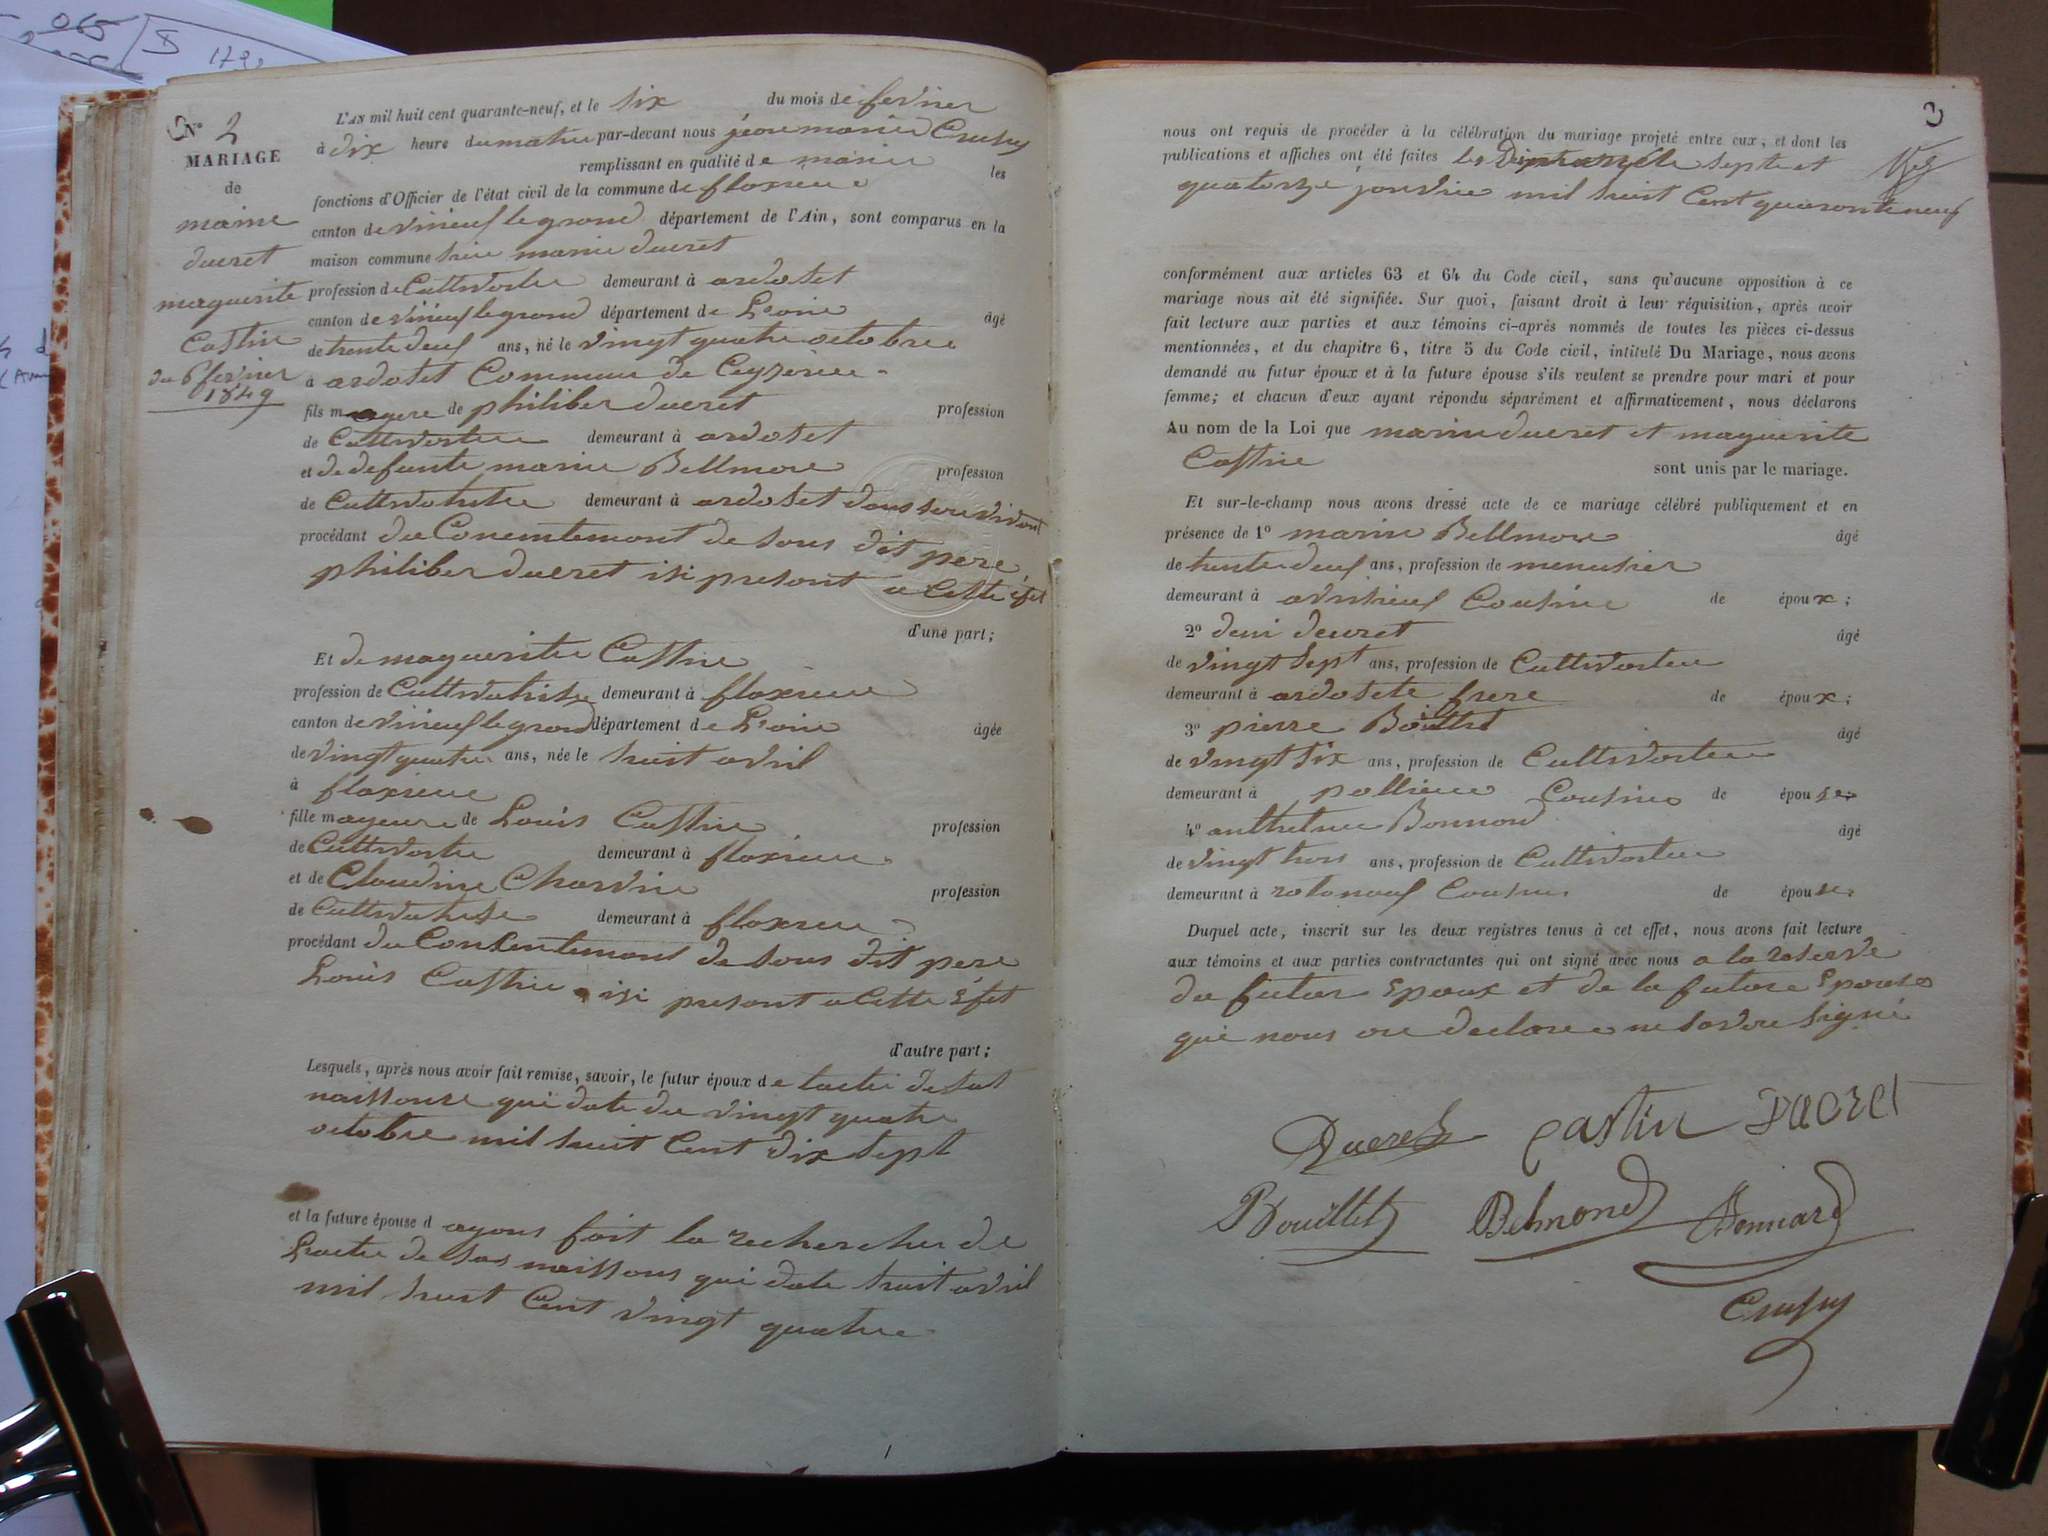 065
1729
N° 2
MARIAGE
de
marin
ducret
maguerite
Castin
du 6 fevrier
1849
L'AN mil huit cent quarante-neuf, et le six du mois de fevrier
à dix heure du matin par-devant nous jean marie Crussy
remplissant en qualité de marie les
fonctions d'Officier de l'état civil de la commune de floxieu
canton de virieu le grand département de l'Ain, sont comparus en la
maison commune marin ducret
profession de Cultivateu demeurant à ardoset
canton de virieu le grand département de L'ain âgé
de trente deus ans, né le vingt quatre octobre
à ardoset Commune de Ceyzerieu
fils mageure de philiber ducret profession
de Cultivateu demeurant à ardoset
et de defunte marie Bellmon profession
de Cultivatrise demeurant à ardoset dans sou vivant
procédant du Conentement de sous dit pere
philiber ducret isi present a Cette éfet
d'une part;
Et de maguerite Castin
profession de Cultivatrise demeurant à floxieu
canton de virieu le grand département de L'ain âgée
de vingt quatre ans, née le huit avril
à floxieu
fille mageure de Louis Castin profession
de Cultivateu demeurant à floxieu
et de Claudine Charvin profession
de Cultivatrise demeurant à floxieu
procédant du Consentement de sous dit pere
Louis Castin isi present a Cette Efet
d'autre part;
Lesquels, après nous avoir fait remise, savoir, le futur époux de lacte de sat
naissanse qui date du vingt quatre
octobre mil huit Cent dix sept
et la future épouse d ayons fait la rechercher de
Lacte de sas naissons qui date huit avril
mil huit Cent vingt quatre
3
nous ont requis de procéder à la célébration du mariage projeté entre eux, et dont les
publications et affiches ont été faites les Dimanche sept et
quatorze janvier mil huit Cent quarante neuf
conformément aux articles 63 et 64 du Code civil, sans qu'aucune opposition à ce
mariage nous ait été signifiée. Sur quoi, faisant droit à leur réquisition, après avoir
fait lecture aux parties et aux témoins ci-après nommés de toutes les pièces ci-dessus
mentionnées, et du chapitre 6, titre 5 du Code civil, intitulé Du Mariage, nous avons
demandé au futur époux et à la future épouse s'ils veulent se prendre pour mari et pour
femme; et chacun d'eux ayant répondu séparément et affirmativement, nous déclarons
Au nom de la Loi que marin ducret et maguerite
Castin sont unis par le mariage.
Et sur-le-champ nous avons dressé acte de ce mariage célébré publiquement et en
présence de 1° marin Bellmon âgé
de trente deus ans, profession de menusier
demeurant à Cousin de époux;
2° deni decret âgé
de vingt sept ans, profession de Cultivateu
demeurant à ardosete frere de époux;
3° pierre Bouillet âgé
de vingt six ans, profession de Cultivateu
demeurant à pollieu Cousin de épouse;
4° anthelme Bonnard âgé
de vingt trois ans, profession de Cultivateu
demeurant à Cousin de épouse.
Duquel acte, inscrit sur les deux registres tenus à cet effet, nous avons fait lecture
aux témoins et aux parties contractantes qui ont signé avec nous a la reserve
du futur Epoux et de la future Epouse
qui nous on declare ne savoir signé
Ducret Castin Ducret
Bouillet Belmond Bonnard
Crussy